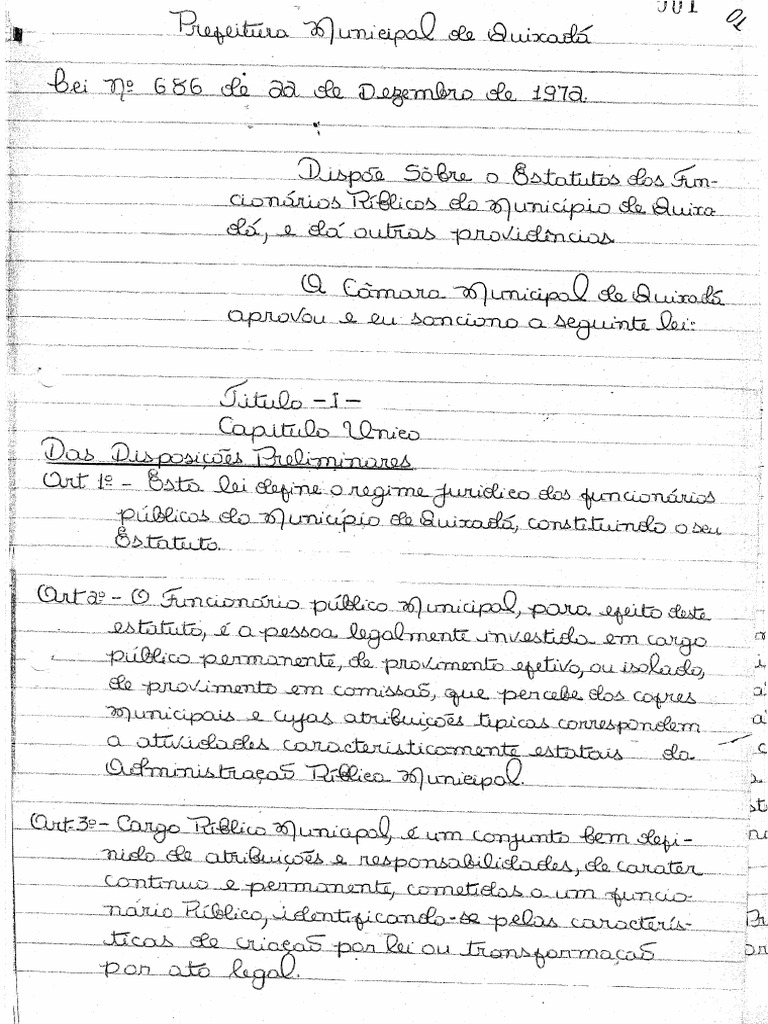 001 01
Prefeitura Municipal de Quixadá
Lei nº 686 de 22 de Dezembro de 1972.
Dispõe Sôbre o Estatutos dos Fun-
cionários Públicos do Município de Quixa
dá, e dá outras providências
A Câmara Municipal de Quixadá
aprovou e eu sanciono a seguinte lei:
Titulo -I-
Capitulo Unico
Das Disposições Preliminares
Art 1º - Esta lei define o regime juridico dos funcionários
públicos do Município de Quixadá, constituindo o seu
Estatuto.
Art 2º - O Funcionário público Municipal, para efeito deste
estatuto, é a pessoa legalmente investida em cargo
público permanente, de provimento efetivo, ou isolado,
de provimento em comissão, que percebe dos cofres
Municipais e cujas atribuições tipicas correspondem
a atividades característicamente estatais da
Administração Pública Municipal.
Art. 3º - Cargo Público Municipal, é um conjunto bem defi-
nido de atribuições e responsabilidades, de carater
continuo e permanente, cometidas a um funcio-
nário Público, identificando-se pelas caracterís-
ticas de criação por lei ou transformação
por ato legal.